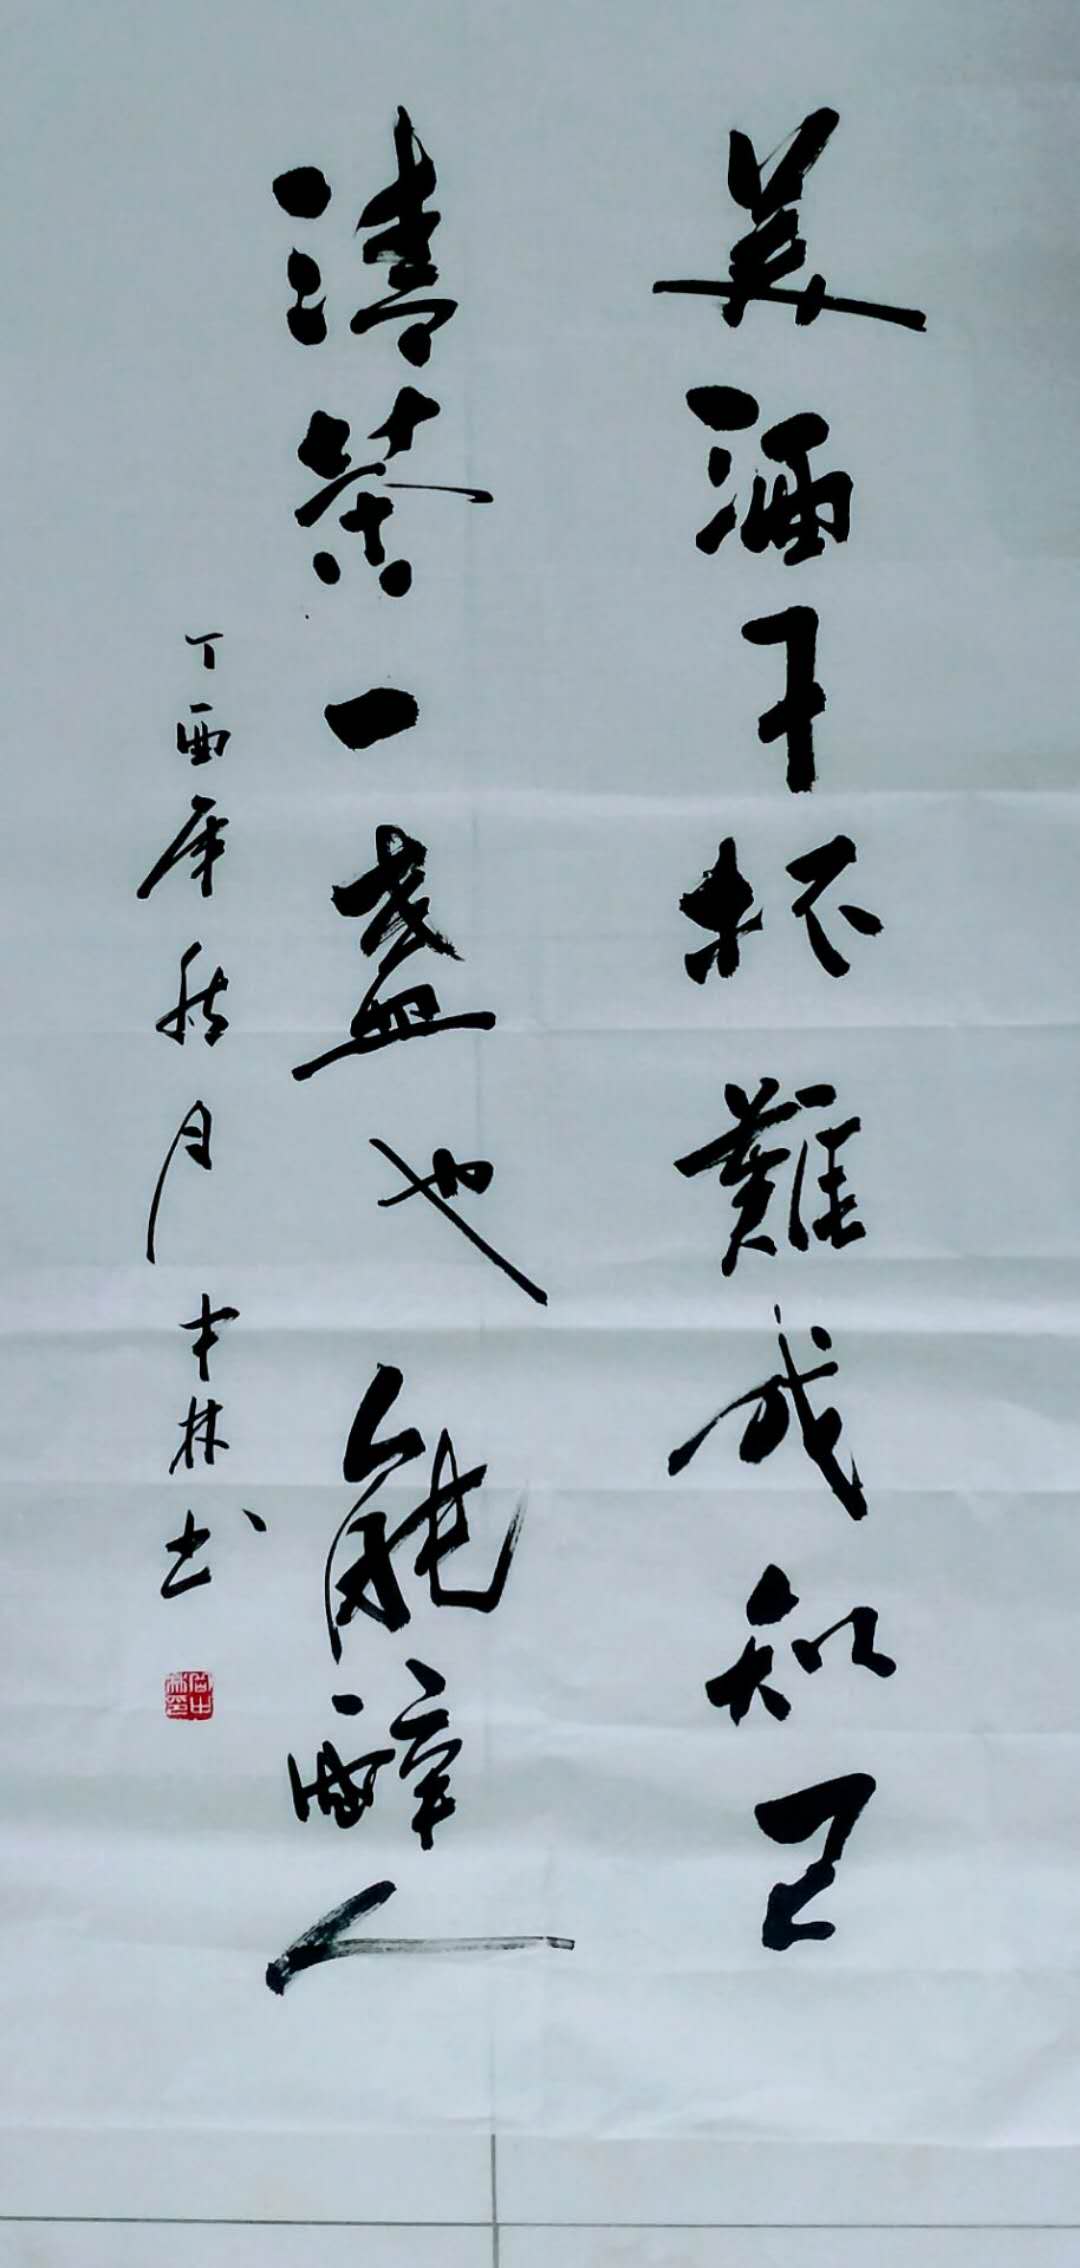 美酒千杯難成知己
清茶一盏也能醉人
丁酉年秋月中林书